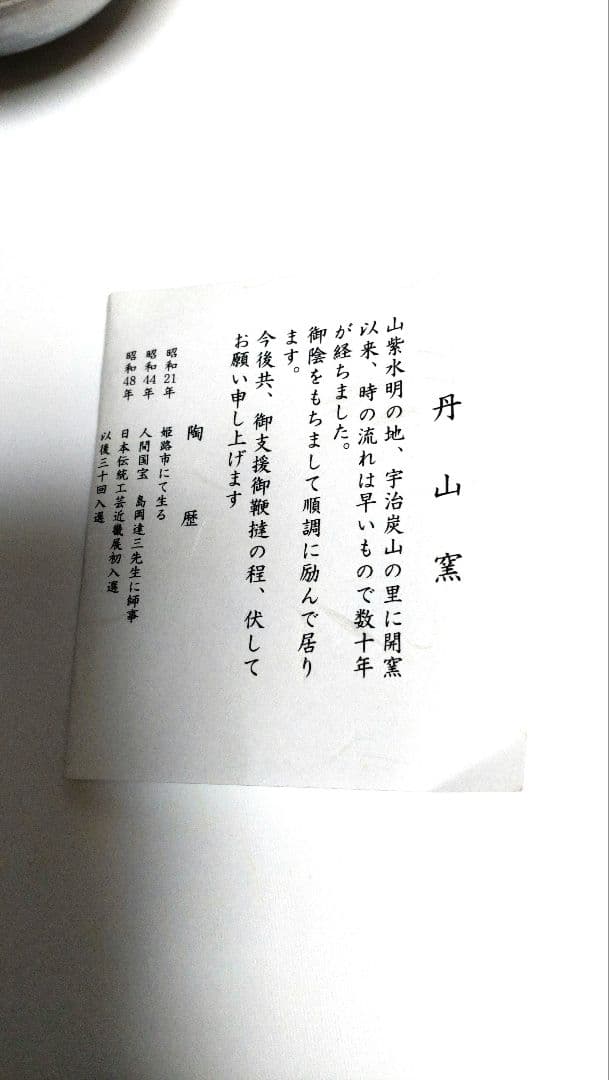 丹山窯
山紫水明の地、宇治炭山の里に開窯
以来、時の流れは早いもので数十年
が経ちました。
御陰をもちまして順調に励んで居り
ます。
今後共、御支援御鞭撻の程、伏して
お願い申し上げます
陶歴
昭和21年 姫路市にて生る
昭和44年 人間国宝 島岡達三先生に師事
昭和48年 日本伝統工芸近畿展初入選
以後三十回入選